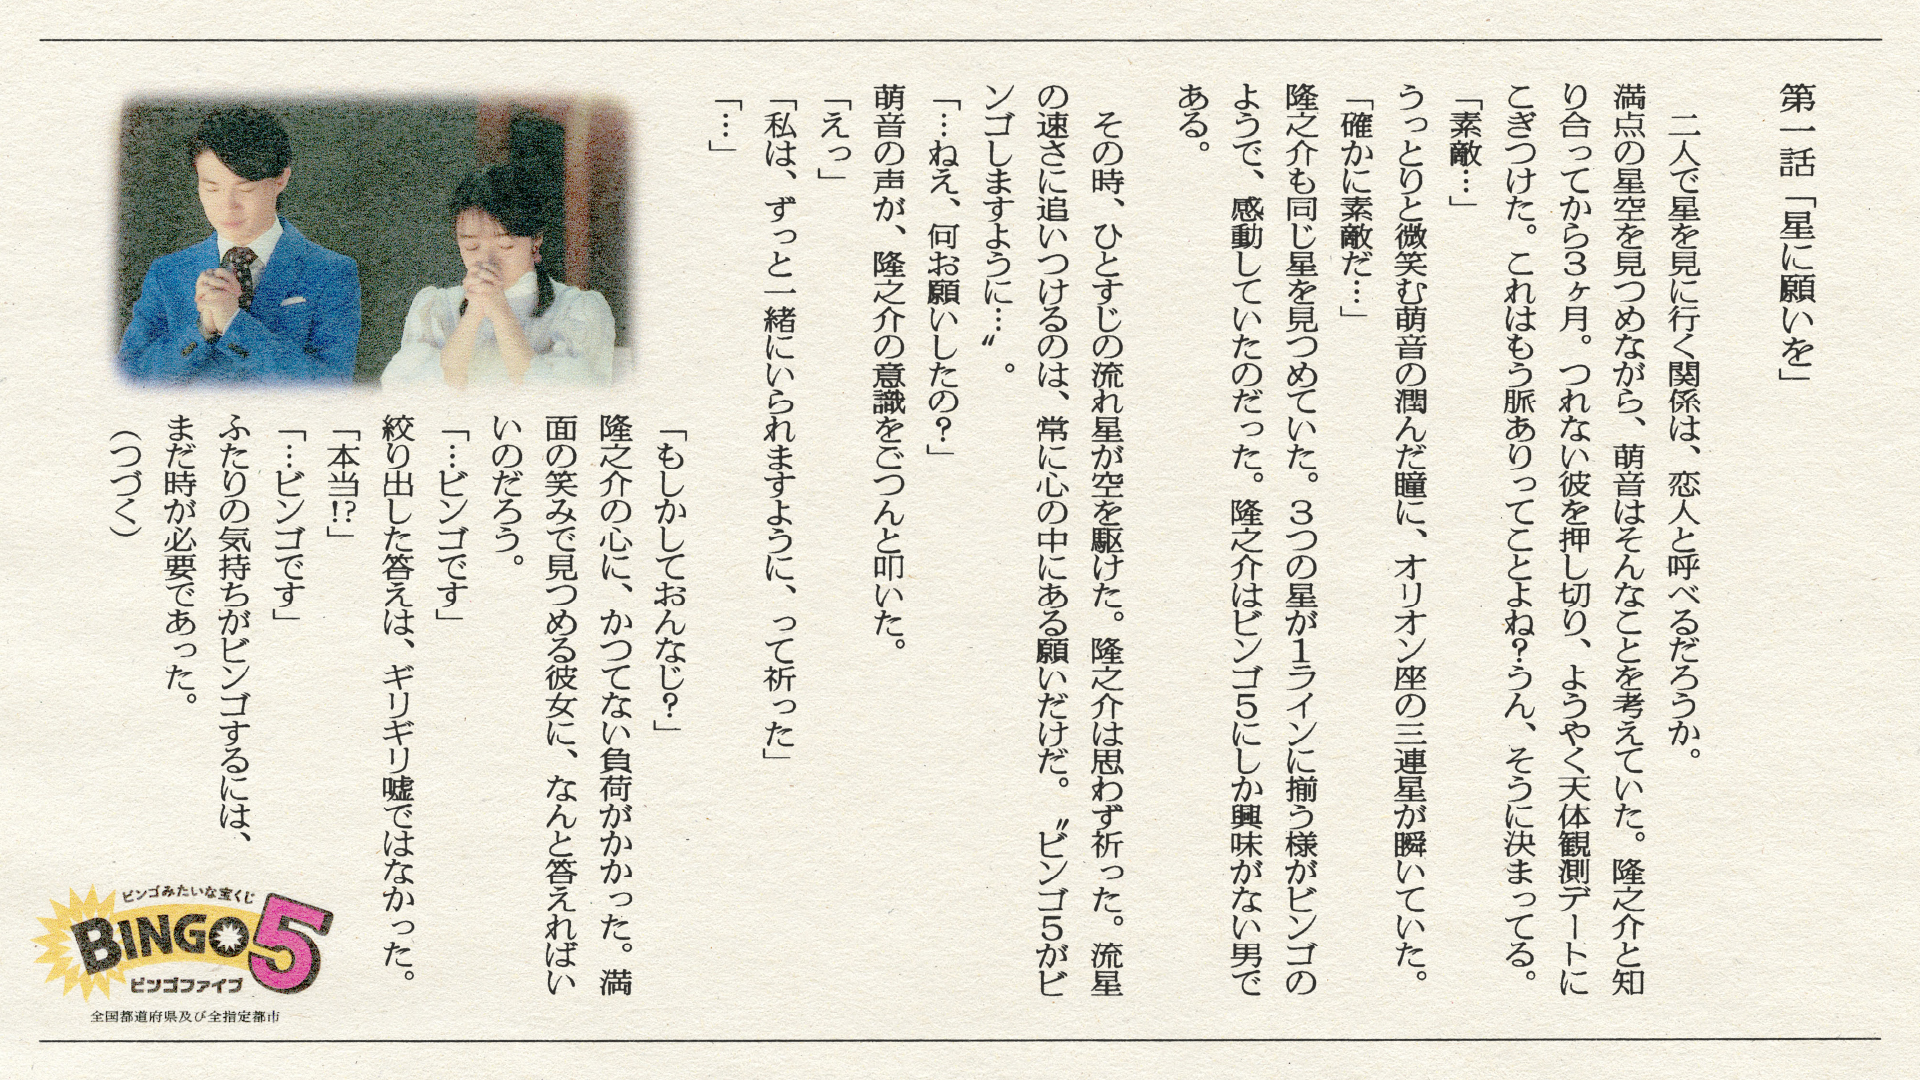 第一話「星に願いを」
二人で星を見に行く関係は、恋人と呼べるだろうか。
満点の星空を見つめながら、萌音はそんなことを考えていた。隆之介と知
り合ってから3ヶ月。つれない彼を押し切り、ようやく天体観測デートに
こぎつけた。これはもう脈ありってことよね?うん、そうに決まってる。
「素敵…」
うっとりと微笑む萌音の潤んだ瞳に、オリオン座の三連星が瞬いていた。
「確かに素敵だ…」
隆之介も同じ星を見つめていた。3つの星が1ラインに揃う様がビンゴの
ようで、感動していたのだった。隆之介はビンゴ5にしか興味がない男で
ある。
その時、ひとすじの流れ星が空を駆けた。隆之介は思わず祈った。流星
の速さに追いつけるのは、常に心の中にある願いだけだ。〝ビンゴ5がビ
ンゴしますように…〟。
「…ねえ、何お願いしたの?」
萌音の声が、隆之介の意識をごつんと叩いた。
「えっ」
「私は、ずっと一緒にいられますように、って祈った」
「…」
「もしかしておんなじ?」
隆之介の心に、かつてない負荷がかかった。満
面の笑みで見つめる彼女に、なんと答えればい
いのだろう。
「…ビンゴです」
絞り出した答えは、ギリギリ嘘ではなかった。
「本当!?」
「…ビンゴです」
ふたりの気持ちがビンゴするには、
まだ時が必要であった。
(つづく)
ビンゴみたいな宝くじ
BINGO5
ビンゴファイブ
全国都道府県及び全指定都市